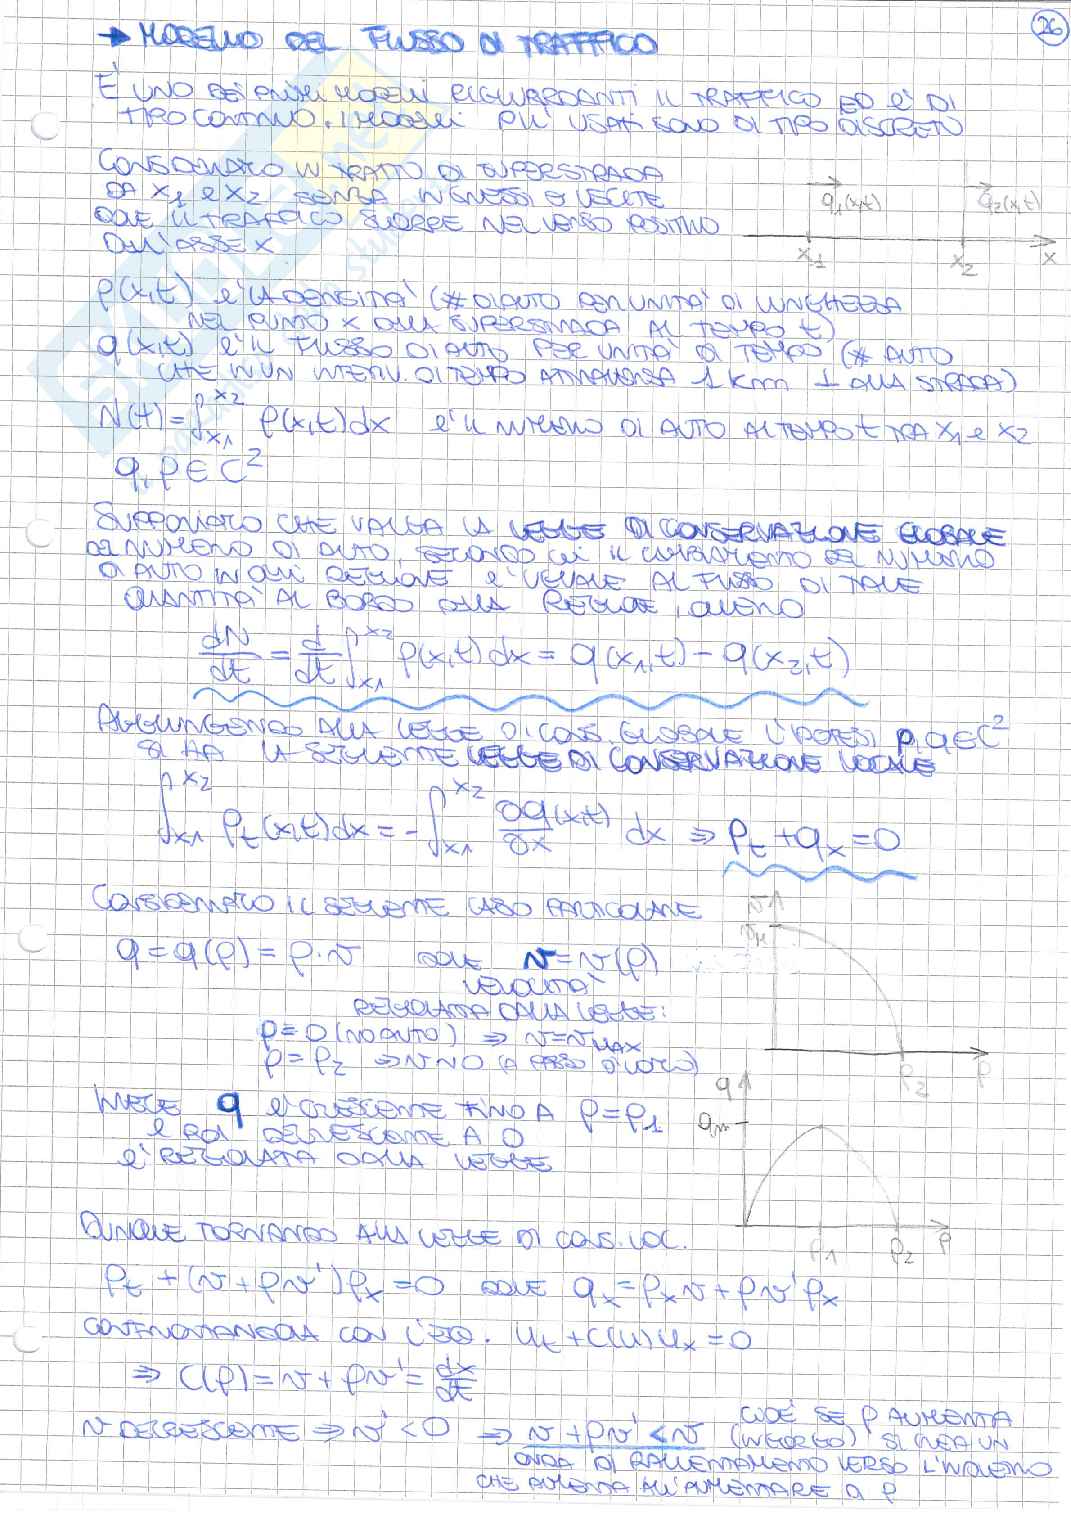 26
→ MODELLO DEL FLUSSO DI TRAFFICO
E' UNO DEI PRIMI MODELLI RIGUARDANTI IL TRAFFICO ED E' DI
TIPO CONTINUO. I MODELLI PIU' USATI SONO DI TIPO DISCRETO
CONSIDERIAMO UN TRATTO DI SUPERSTRADA
DA x1 e x2 SENZA INGRESSI E USCITE
DOVE IL TRAFFICO SCORRE NEL VERSO POSITIVO
DELL'ASSE x
q1(x,t) q2(x,t)
x1 x2 x
ρ(x,t) E' LA DENSITA' (# DI AUTO PER UNITA' DI LUNGHEZZA
NEL PUNTO x DELLA SUPERSTRADA AL TEMPO t)
q(x,t) E' IL FLUSSO DI AUTO PER UNITA' DI TEMPO (# AUTO
CHE IN UN INTERV. DI TEMPO ATTRAVERSA 1 Km ⊥ ALLA STRADA)
N(t) = ∫_{x1}^{x2} ρ(x,t) dx E' IL NUMERO DI AUTO AL TEMPO t TRA x1 e x2
q, ρ ∈ C²
SUPPONIAMO CHE VALGA LA LEGGE DI CONSERVAZIONE GLOBALE
DEL NUMERO DI AUTO, SECONDO CUI IL CAMBIAMENTO DEL NUMERO
DI AUTO IN OGNI REGIONE E' UGUALE AL FLUSSO DI TALE
QUANTITA' AL BORDO DELLA REGIONE, OVVERO
dN/dt = d/dt ∫_{x1}^{x2} ρ(x,t) dx = q(x1,t) - q(x2,t)
AGGIUNGENDO ALLA LEGGE DI CONS. GLOBALE L'IPOTESI ρ,q ∈ C²
SI HA LA SEGUENTE LEGGE DI CONSERVAZIONE LOCALE
∫_{x1}^{x2} ρt(x,t) dx = - ∫_{x1}^{x2} ∂q(x,t)/∂x dx ⇒ ρt + qx = 0
CONSIDERIAMO IL SEGUENTE CASO PARTICOLARE
q = q(ρ) = ρ·v DOVE v = v(ρ)
VELOCITA'
REGOLATA DALLA LEGGE:
ρ = 0 (NO AUTO) ⇒ v = vMAX
ρ = ρ2 ⇒ v~0 (A PASSO D'UOMO)
v
vM
ρ2 ρ
INVECE q E' CRESCENTE FINO A ρ = ρ1
E POI DECRESCENTE A 0
E' REGOLATA DALLA LEGGE
q
qm
ρ1 ρ2 ρ
DUNQUE TORNANDO ALLA LEGGE DI CONS. LOC.
ρt + (v + ρv')ρx = 0 DOVE qx = ρx v + ρv'ρx
CONFRONTANDOLA CON L'EQ. ut + c(u)ux = 0
⇒ C(ρ) = v + ρv' = dx/dt
v DECRESCENTE ⇒ v' < 0 ⇒ v + ρv' < v CIOE' SE ρ AUMENTA
(INGORGO) SI CREA UN
ONDA DI RALLENTAMENTO VERSO L'INDIETRO
CHE AUMENTA ALL'AUMENTARE DI ρ